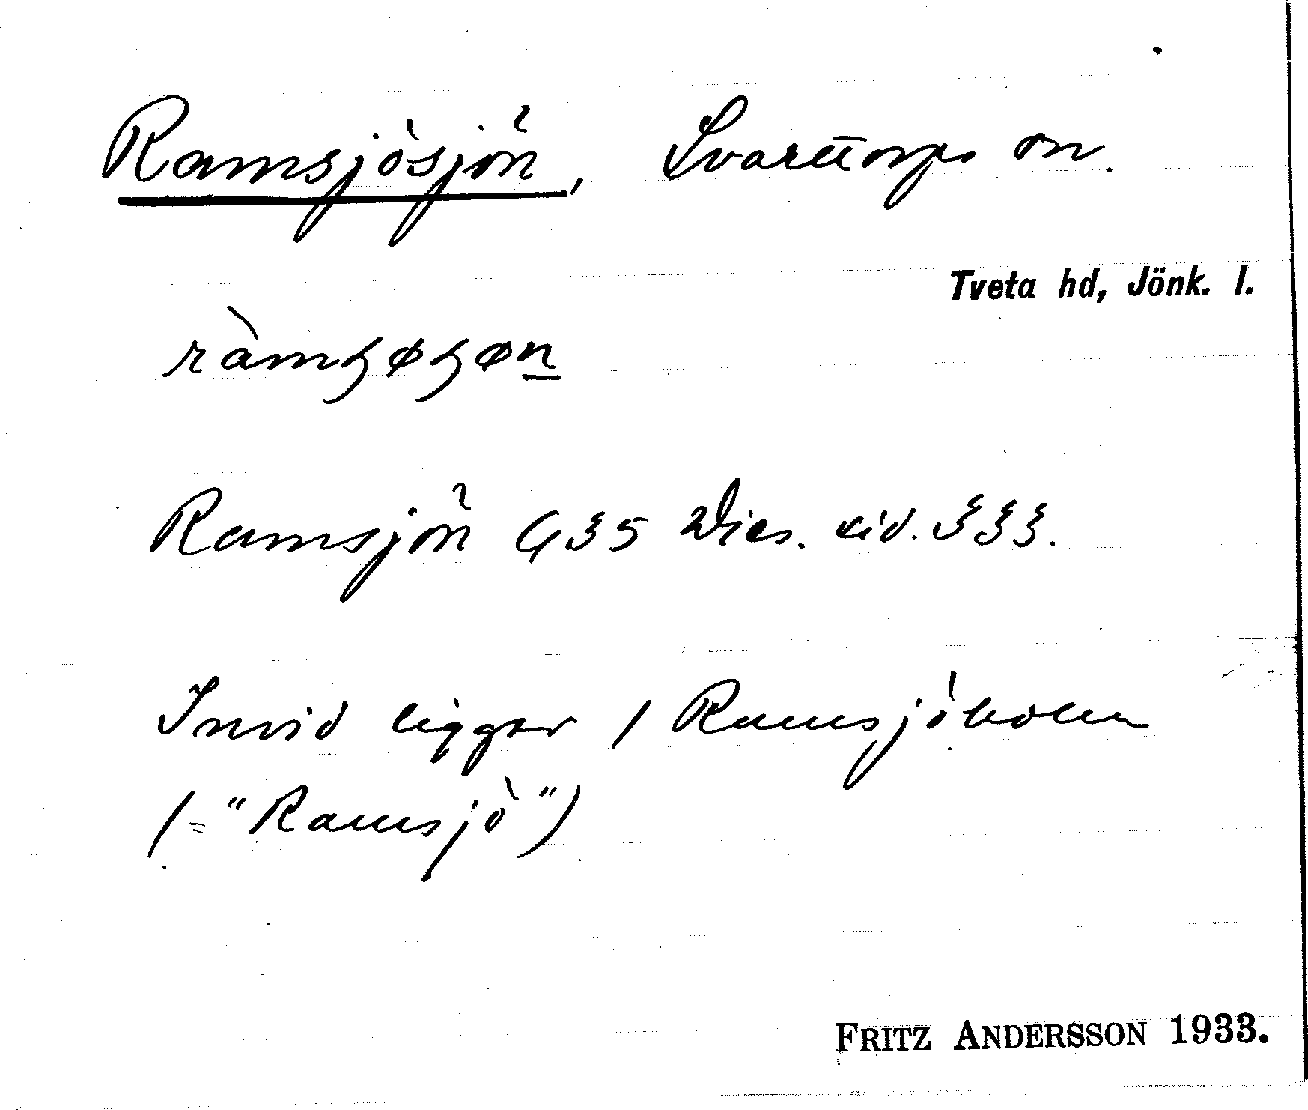 Ramsjösjön, Svarttorps sn.
Tveta hd, Jönk. l.
ràmʂøʂøn
Ramsjön G35 Wies. sid. 333.
Invid ligger / Ramsjöholm
(= "Ramsjö")
FRITZ ANDERSSON 1933.